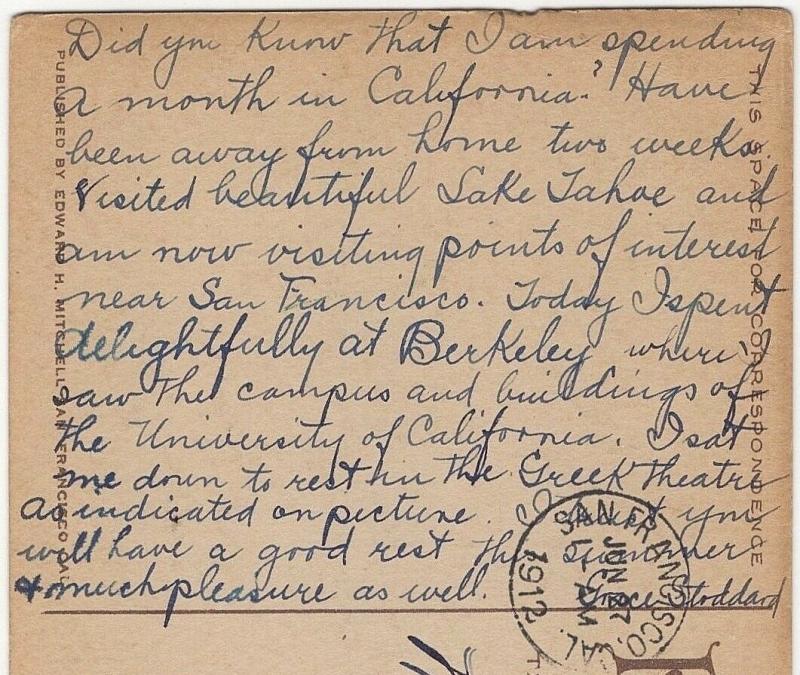 Did you know that I am spending
a month in California? Have
been away from home two weeks.
Visited beautiful Lake Tahoe and
am now visiting points of interest
near San Francisco. Today I spent
delightfully at Berkeley where I
saw the campus and buildings of
the University of California. I sat
me down to rest in the Greek Theatre
as indicated on picture. I trust you
will have a good rest this summer
& much pleasure as well. Grace Stoddard
PUBLISHED BY EDWARD H. MITCHELL, SAN FRANCISCO, CAL.
THIS SPACE FOR CORRESPONDENCE
SAN FRANCISCO, CAL.
JUN 27
1 AM
1912